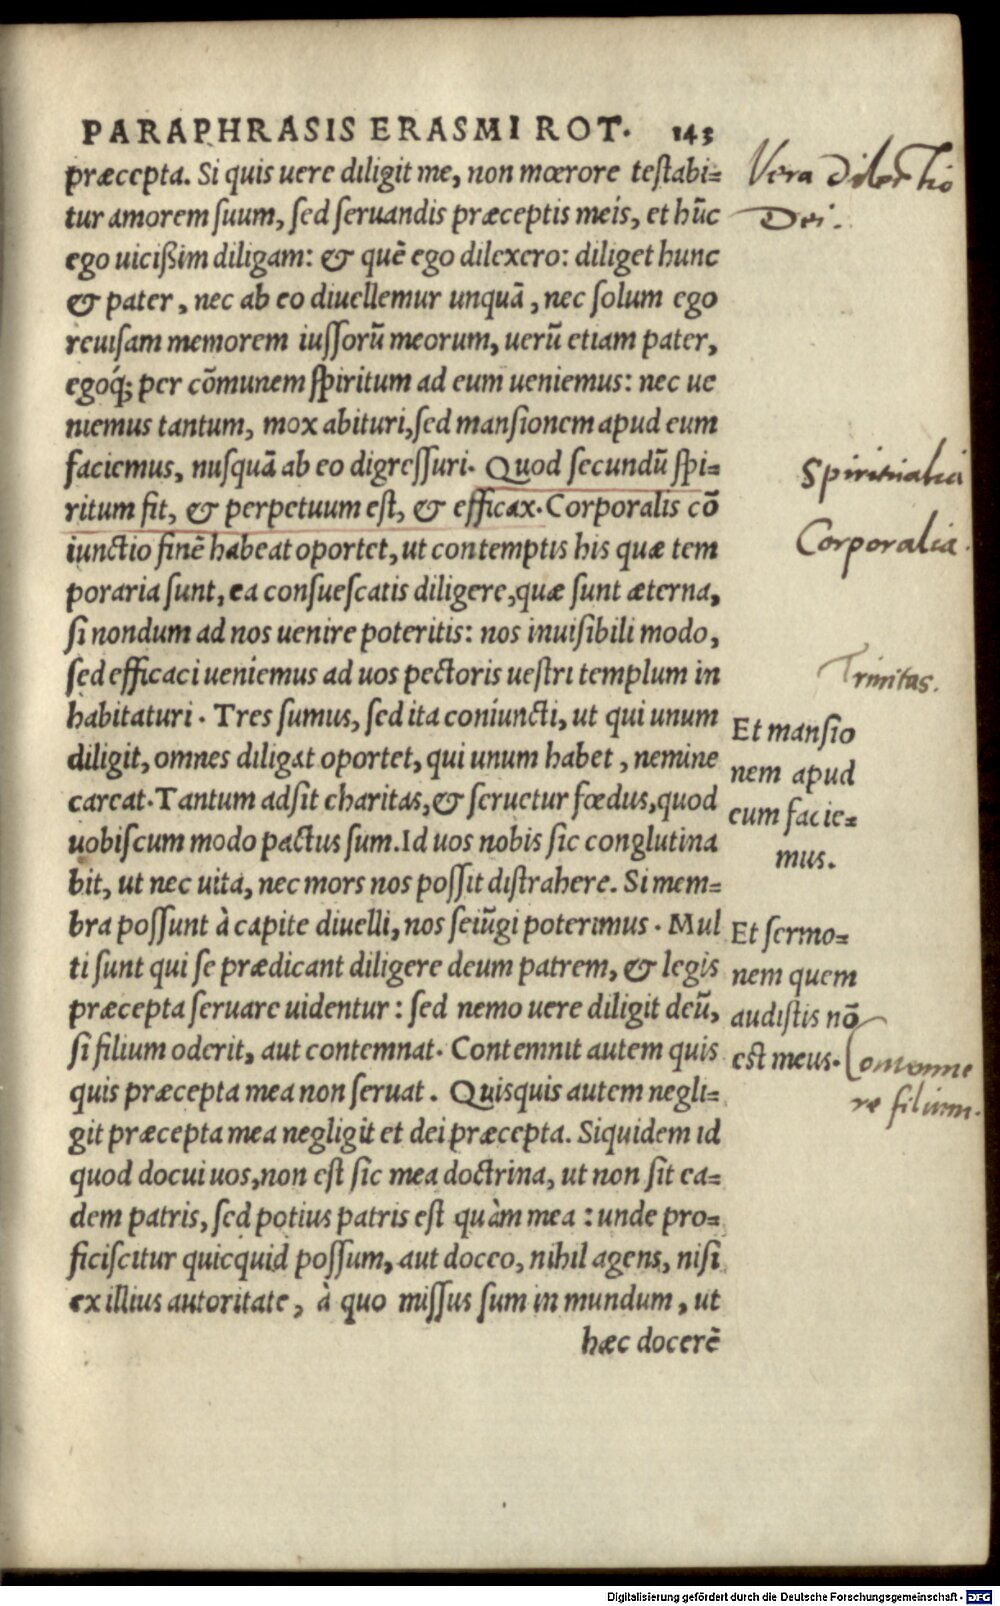 PARAPHRASIS ERASMI ROT. 143
præcepta. Si quis uere diligit me, non mœrore testabi=
tur amorem suum, sed seruandis præceptis meis, et hūc
ego uicißim diligam: & quē ego dilexero: diliget hunc
& pater, nec ab eo diuellemur unquā, nec solum ego
reuisam memorem iussorū meorum, uerū etiam pater,
egoq́; per cōmunem spiritum ad eum ueniemus: nec ue
niemus tantum, mox abituri, sed mansionem apud eum
faciemus, nusquā ab eo digressuri. Quod secundū spi=
ritum fit, & perpetuum est, & efficax. Corporalis cō
iunctio finē habeat oportet, ut contemptis his quæ tem
poraria sunt, ea consuescatis diligere, quæ sunt æterna,
si nondum ad nos uenire poteritis: nos inuisibili modo,
sed efficaci ueniemus ad uos pectoris uestri templum in
habitaturi. Tres sumus, sed ita coniuncti, ut qui unum
diligit, omnes diligat oportet, qui unum habet, nemine
careat. Tantum adsit charitas, & seruetur fœdus, quod
uobiscum modo pactus sum. Id uos nobis sic conglutina
bit, ut nec uita, nec mors nos possit distrahere. Si mem=
bra possunt à capite diuelli, nos seiūgi poterimus. Mul
ti sunt qui se prædicant diligere deum patrem, & legis
præcepta seruare uidentur: sed nemo uere diligit deū,
si filium oderit, aut contemnat. Contemnit autem quis
quis præcepta mea non seruat. Quisquis autem negli=
git præcepta mea negligit et dei præcepta. Siquidem id
quod docui uos, non est sic mea doctrina, ut non sit ea=
dem patris, sed potius patris est quàm mea: unde pro=
ficiscitur quicquid possum, aut doceo, nihil agens, nisi
ex illius autoritate, à quo missus sum in mundum, ut
hæc docerē
Vera dilectio
Dei.
Spiritualia
Corporalia.
Trinitas.
Et mansio
nem apud
eum facie=
mus.
Et sermo=
nem quem
audistis nō
est meus.
Contemne
re filium.
Digitalisierung gefördert durch die Deutsche Forschungsgemeinschaft - DFG